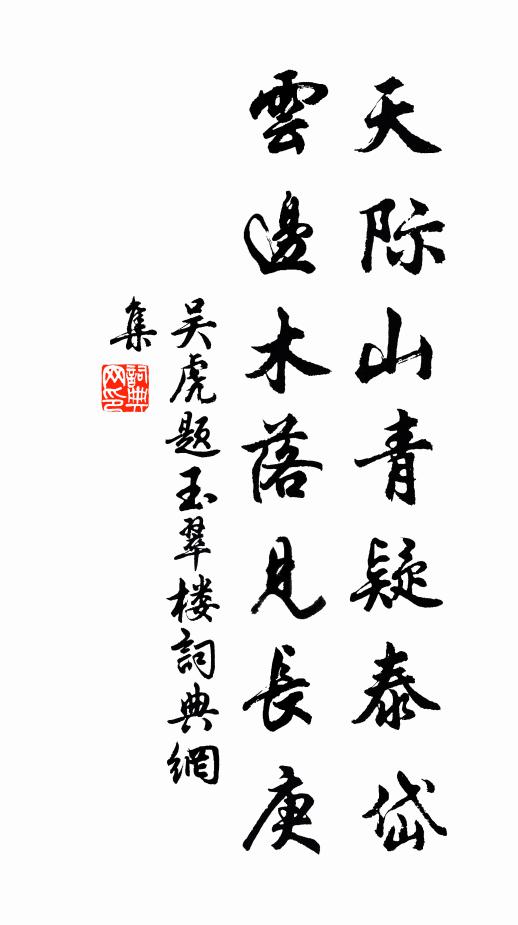 天际山青疑泰岱
雲邊木落見長庚
吴虎题玉翠楼詞典網
集
詞典网印